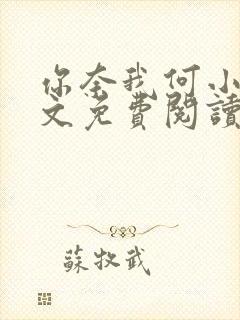 你奈我何小
文免費閱讀
蘇牧武